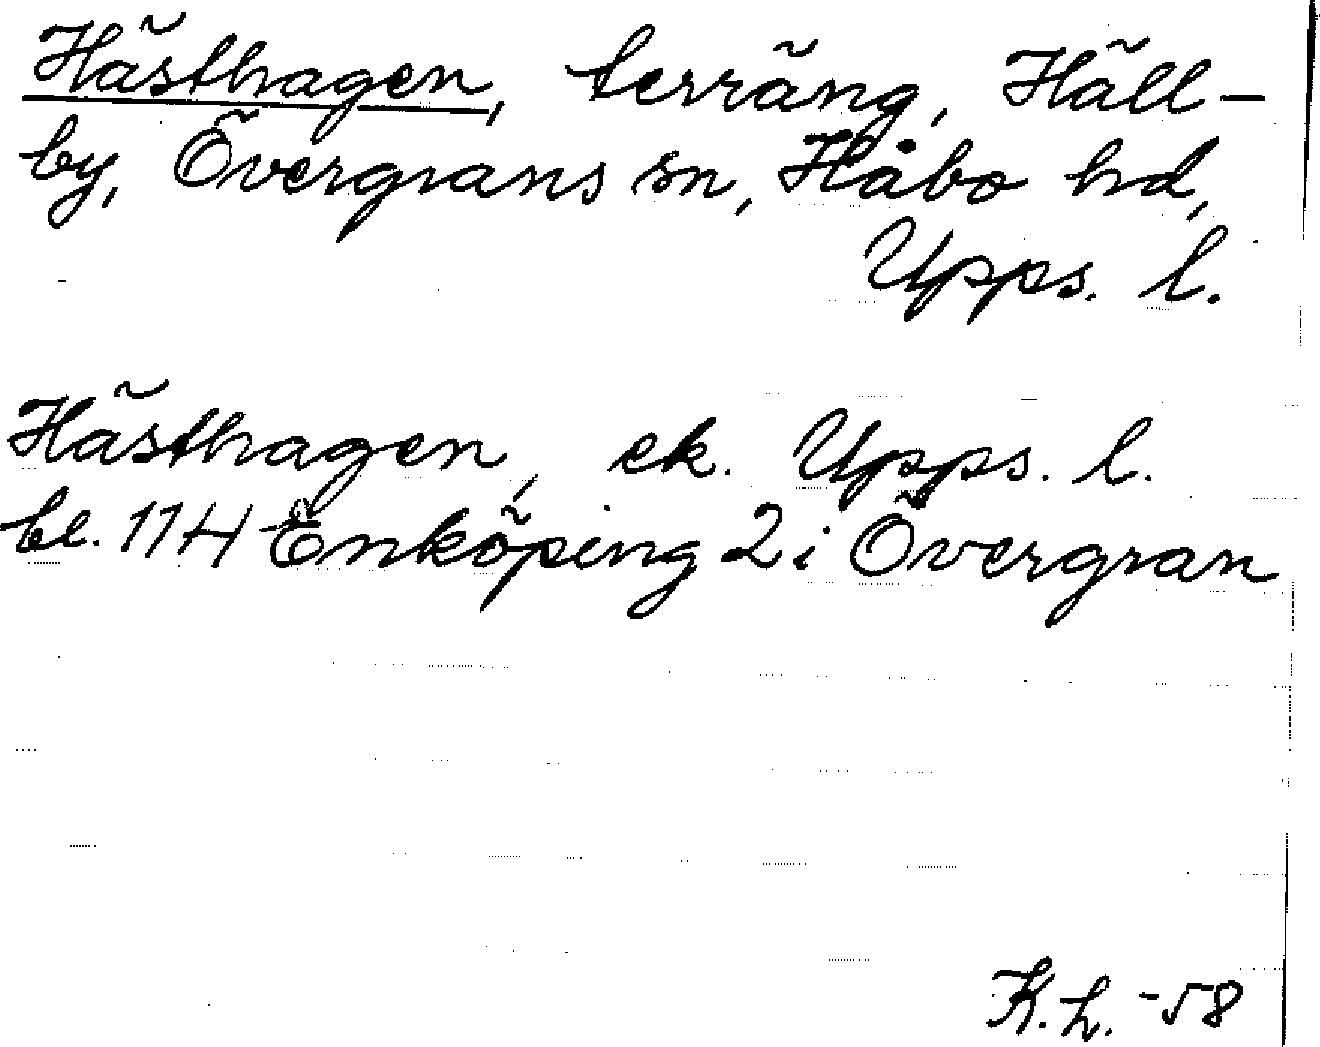 Hästhagen, terräng, Häll-
by, Övergrans sn, Håbo hd,
Upps. l.
Hästhagen, ek. Upps. l.
bl. 114 Enköping 2 i Övergran
K.L. -58